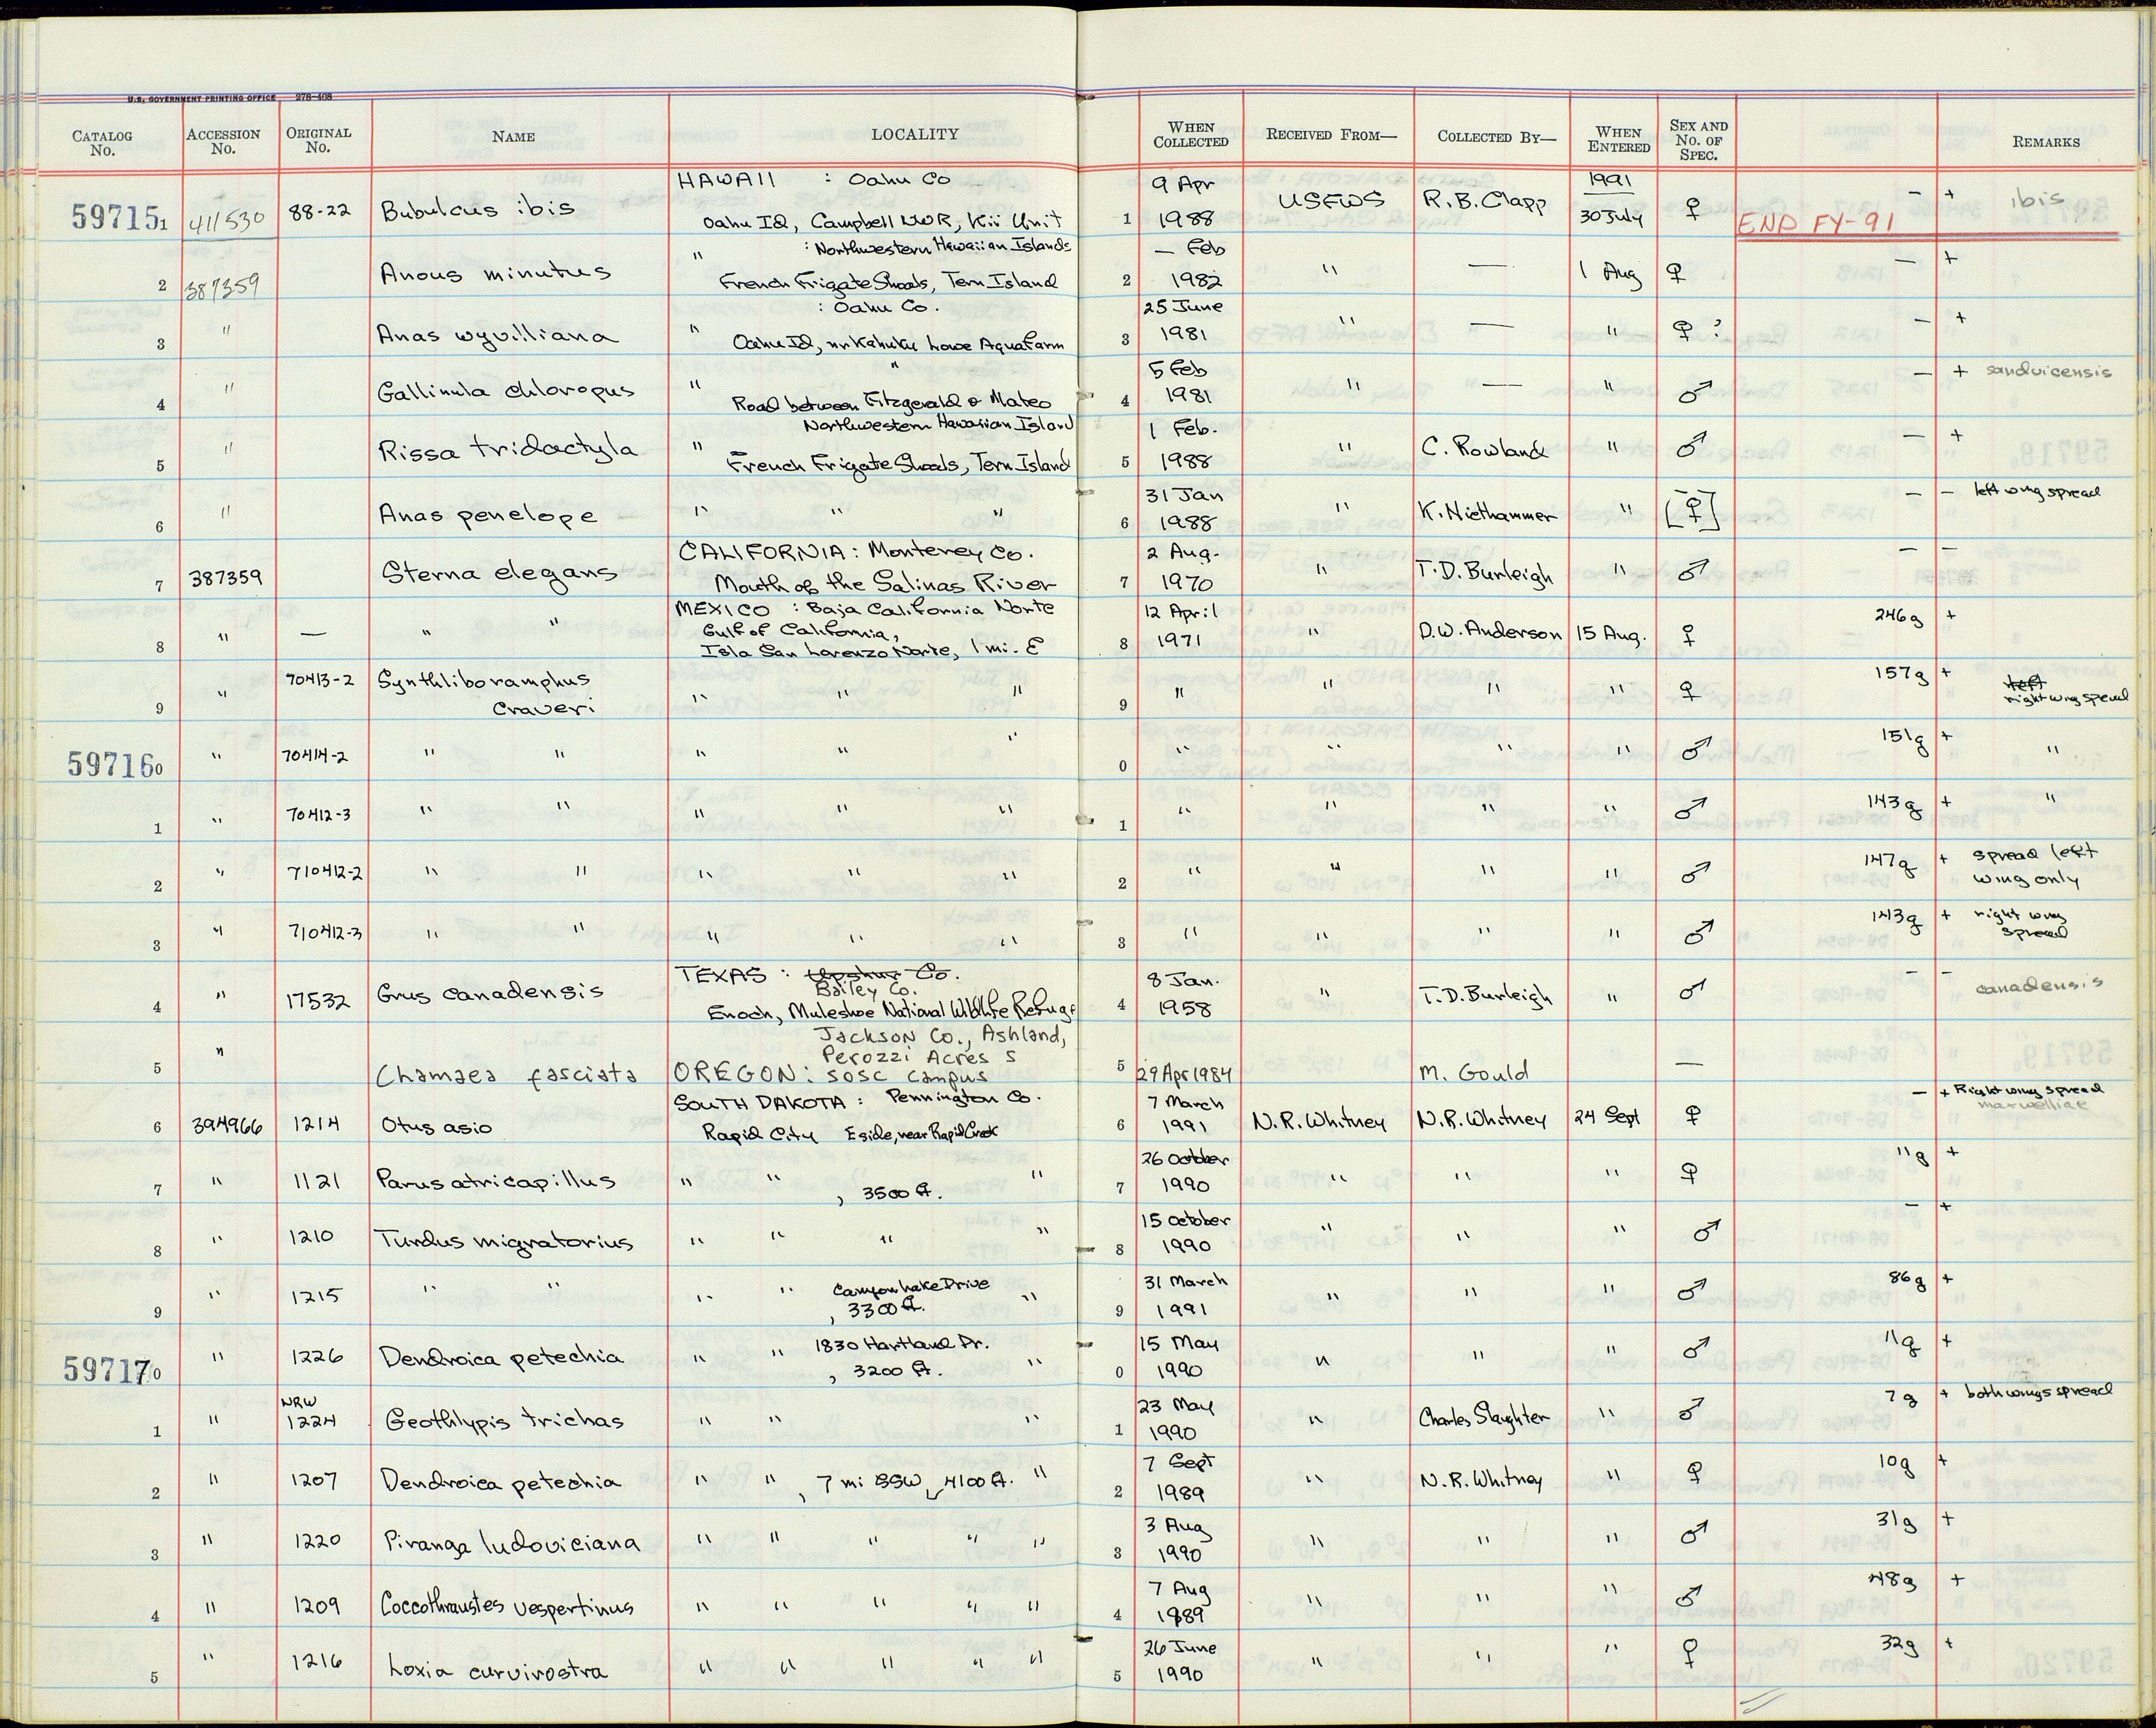 U.S. GOVERNMENT PRINTING OFFICE 278-408
CATALOG No. ACCESSION No. ORIGINAL No. NAME LOCALITY WHEN COLLECTED RECEIVED FROM— COLLECTED BY— WHEN ENTERED SEX AND No. OF SPEC. REMARKS
HAWAII : Oahu Co 9 Apr 1991
597151 411530 88-22 Bubulcus ibis Oahu Id, Campbell NWR, Kii Unit 1 1988 USFWS R.B. Clapp 30 July ♀ END FY-91 — + ibis
" : Northwestern Hawaiian Islands — Feb
2 387359 Anous minutus French Frigate Shoals, Tern Island 2 1982 " — 1 Aug ♀ — +
: Oahu Co. 25 June
3 " Anas wyvilliana " Oahu Id, nr Kahuku Lowe Aquafarm 3 1981 " — " ♀ ? — +
" 5 Feb
4 " Gallinula chloropus " Road between Fitzgerald & Mateo 4 1981 " — " ♂ — + sandvicensis
Northwestern Hawaiian Island 1 Feb.
5 " Rissa tridactyla " French Frigate Shoals, Tern Island 5 1988 " C. Rowland " ♂ — +
31 Jan
6 " Anas penelope " " " 6 1988 " K. Niethammer " [♀] — — left wing spread
CALIFORNIA : Monterey Co. 2 Aug.
7 387359 Sterna elegans Mouth of the Salinas River 7 1970 " T.D. Burleigh " ♂ — —
MEXICO : Baja California Norte 12 April
8 " — " " Gulf of California, 8 1971 " D.W. Anderson 15 Aug. ♀ 246g +
Isla San Lorenzo Norte, 1 mi. E
9 " 70413-2 Synthliboramphus " " " 9 " " " " ♀ 157g + left
craveri right wing spread
597160 " 70414-2 " " " " " 0 " " " " ♂ 151g + "
1 " 70412-3 " " " " " 1 " " " " ♂ 143g + "
2 " 710412-2 " " " " " 2 " " " " ♂ 147g + spread left
wing only
3 " 710412-3 " " " " " 3 " " " " ♂ 143g + right wing
spread
TEXAS : Upshur Co. 8 Jan.
Bailey Co.
4 " 17532 Grus canadensis Enoch, Muleshoe National Wildlife Refuge 4 1958 " T.D. Burleigh " ♂ — — canadensis
Jackson Co., Ashland,
" Perozzi Acres S
5 Chamaea fasciata OREGON : SOSC campus 5 29 Apr 1984 M. Gould —
SOUTH DAKOTA : Pennington Co. 7 March — + Right wing spread
6 394966 1214 Otus asio Rapid City E side, near Rapid Creek 6 1991 N.R. Whitney N.R. Whitney 24 Sept ♀ maxwelliae
26 October
7 " 1121 Parus atricapillus " " , 3500 ft. " 7 1990 " " " ♀ 11g +
15 October
8 " 1210 Turdus migratorius " " " " 8 1990 " " " ♂ — +
Canyon Lake Drive 31 March
9 " 1215 " " " " , 3300 ft. " 9 1991 " " " ♂ 86g +
1830 Hartland Dr. 15 May
597170 " 1226 Dendroica petechia " " , 3200 ft. " 0 1990 " " " ♂ 11g +
NRW 23 May
1 " 1224 Geothlypis trichas " " " 1 1990 " Charles Slaughter " ♂ 7g + both wings spread
7 Sept
2 " 1207 Dendroica petechia " " , 7 mi SSW, 4100 ft. " 2 1989 " N.R. Whitney " ♀ 10g +
3 Aug
3 " 1220 Piranga ludoviciana " " " " " 3 1990 " " " ♂ 31g +
7 Aug
4 " 1209 Coccothraustes vespertinus " " " " " 4 1989 " " " ♂ 48g +
26 June
5 " 1216 Loxia curvirostra " " " " " 5 1990 " " " ♀ 32g +